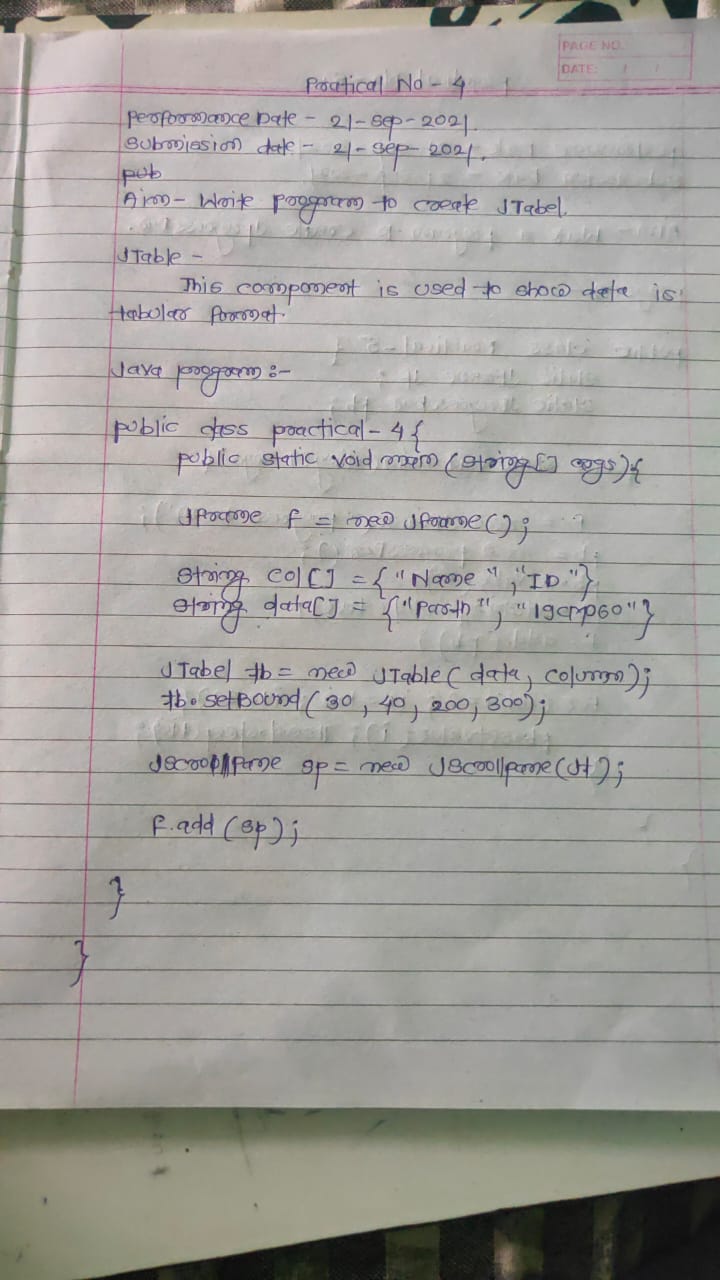 PAGE NO.
DATE: / /
Pratical No - 4
Performance Date - 21-sep-2021.
Submission date - 21-sep-2021.
pub
Aim - Write program to create JTabel.
JTable -
This component is used to show data is
tabular format.
Java program :-
public class practical-4 {
public static void main (String[] args) {
JFrame f = new JFrame();
String col[] = {"Name", "ID"}
String data[] = {"Parth", "19cmp60"}
JTabel tb = new JTable(data, column);
tb.setBound(30, 40, 200, 300);
JScrollpane sp = new JScrollpane(Jt);
f.add(sp);
}
}